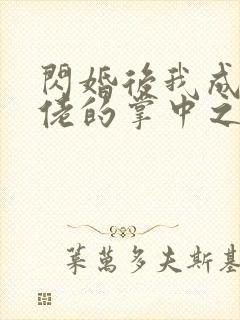 閃婚後我成
佬的掌中之
葉萬多夫斯基